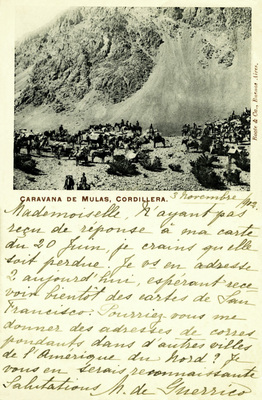 CARAVANA DE MULAS, CORDILLERA.
Rosti & Co., Buenos Aires.
3 novembre 1902
Mademoiselle, N'ayant pas
reçu de réponse à ma carte
du 20 Juin, je crains qu'elle
soit perdue. Je vs en adresse
2 aujourd'hui, espérant rece
voir bientôt des cartes de San
Francisco: Pourriez vous me
donner des adresses de corres
pondants dans d'autres villes
de l'Amérique du Nord? Je
vous en serais reconnaissante
Salutations M. de Guerrico